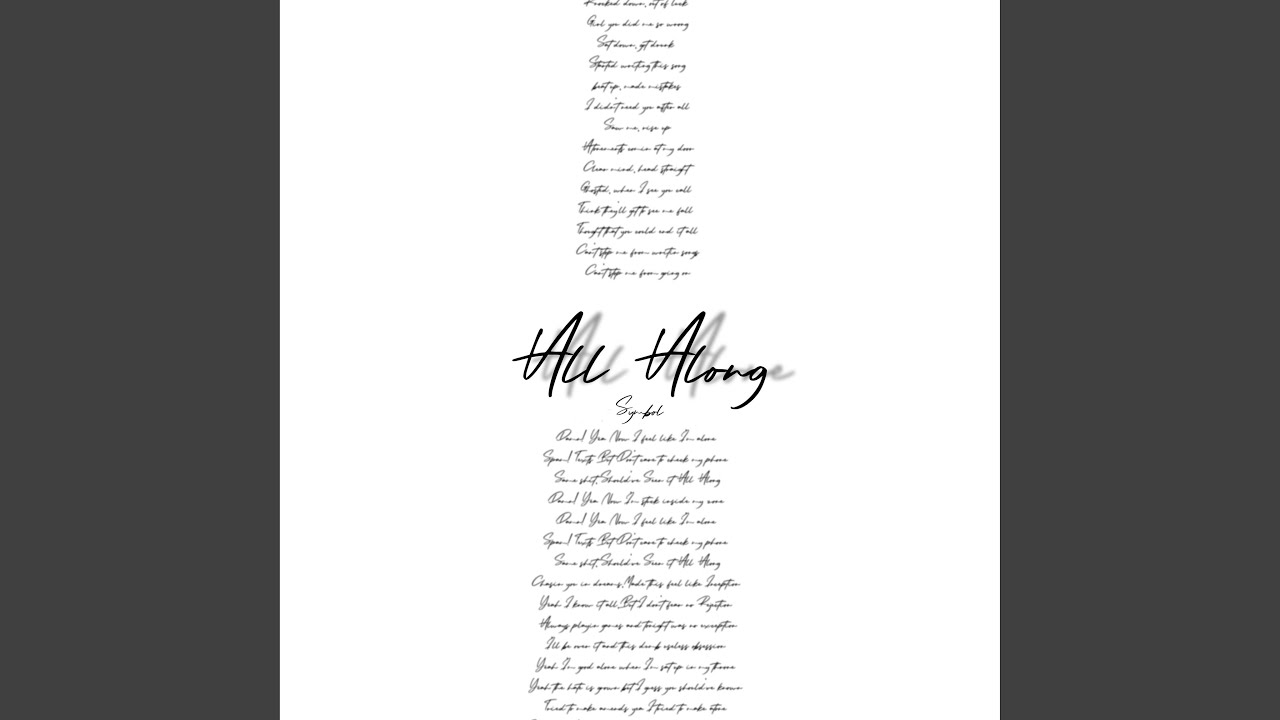 Knocked down, out of luck
Girl you did me so wrong
Sat down, got drunk
Started writing this song
beat up, made mistakes
I didn't need you after all
Saw me, rise up
Atonements comin at my door
Clear mind, head straight
Ghosted, when I see you call
Think they'll got to see me fall
Thought that you could end it all
Can't stop me from writin songs
Can't stop me from going on
All Along
Symbol
Damn! Yea Now I feel like I'm alone
Spam! Texts But Don't care to check my phone
Same shit, Should've Seen it All Along
Damn! Yea Now I'm stuck inside my zone
Damn! Yea Now I feel like I'm alone
Spam! Texts But Don't care to check my phone
Same shit, Should've Seen it All Along
Chasin you in dreams, Made this feel like Inception
Yeah I know it all, But I don't fear no Rejection
Always playin games and tonight was no exception
I'll be over it and this dumb useless obsession
Yeah I'm good alone when I'm sat up in my throne
Yeah the hate is grown but I guess you should've known
Tried to make amends yea I tried to make atone